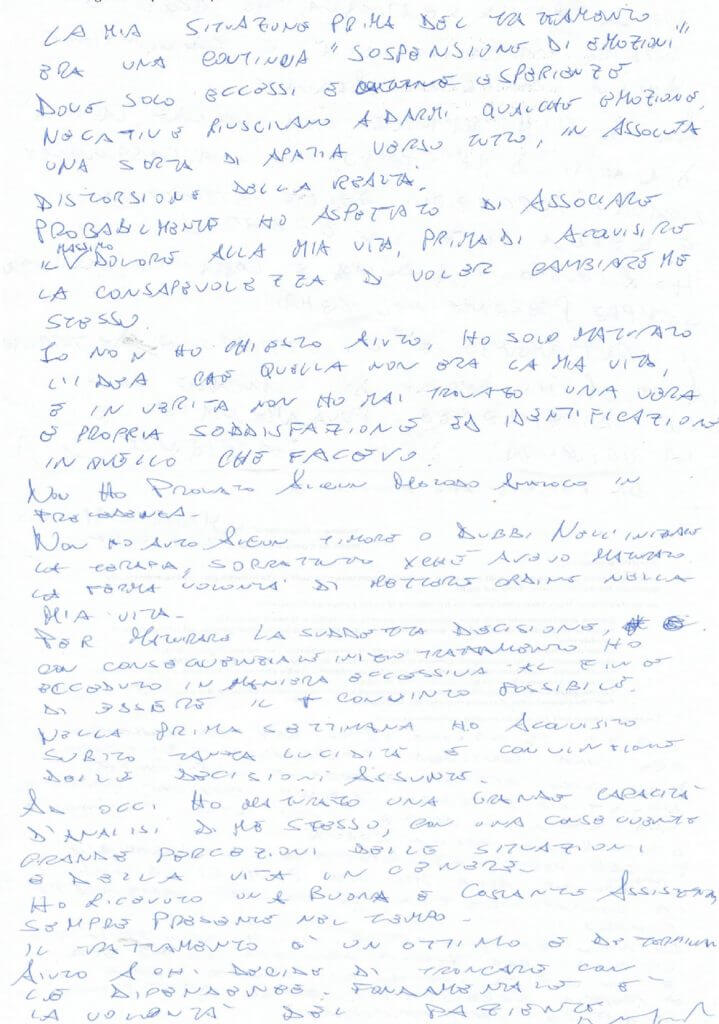 LA MIA SITUAZIONE PRIMA DEL TRATTAMENTO
ERA UNA CONTINUA "SOSPENSIONE DI EMOZIONI"
DOVE SOLO ECCESSI E ESPERIENZE
NEGATIVE RIUSCIVANO A DARMI QUALCHE EMOZIONE,
UNA SORTA DI APATIA VERSO TUTTO, IN ASSOLUTA
DISTORSIONE DELLA REALTÀ.
PROBABILMENTE HO ASPETTATO DI ASSOCIARE
IL MASSIMO DOLORE ALLA MIA VITA, PRIMA DI ACQUISIRE
LA CONSAPEVOLEZZA DI VOLER CAMBIARE ME
STESSO.
IO NON HO CHIESTO AIUTO, HO SOLO MATURATO
L'IDEA CHE QUELLA NON ERA LA MIA VITA,
E IN VERITÀ NON HO MAI TROVATO UNA VERA
E PROPRIA SODDISFAZIONE ED IDENTIFICAZIONE
IN QUELLO CHE FACEVO.
NON HO PROVATO ALCUN METODO ANALOGO IN
PRECEDENZA.
NON HO AVUTO ALCUN TIMORE O DUBBI NELL'INIZIARE
LA TERAPIA, SOPRATTUTTO XCHÉ AVEVO MATURATO
LA FERMA VOLONTÀ DI METTERE ORDINE NELLA
MIA VITA.
PER MATURARE LA SUDDETTA DECISIONE,
CON CONSEGUENZIALE INIZIO TRATTAMENTO HO
ECCEDUTO IN MANIERA ECCESSIVA AL FINE
DI ESSERE IL + CONVINTO POSSIBILE.
NELLA PRIMA SETTIMANA HO ACQUISITO
SUBITO TANTA LUCIDITÀ E CONVINZIONE
DELLE DECISIONI ASSUNTE.
AD OGGI HO MATURATO UNA GRANDE CAPACITÀ
D'ANALISI DI ME STESSO, CON UNA CONSEGUENTE
GRANDE PERCEZIONI DELLE SITUAZIONI
E DELLA VITA IN GENERE.
HO RICEVUTO UNA BUONA E COSTANTE ASSISTENZA
SEMPRE PRESENTE NEL TEMPO.
IL TRATTAMENTO È UN OTTIMO E DETERMIN
AIUTO A CHI DECIDE DI TRONCARE CON
LE DIPENDENZE. FONDAMENTALE È
LA VOLONTÀ DEL PAZIENTE